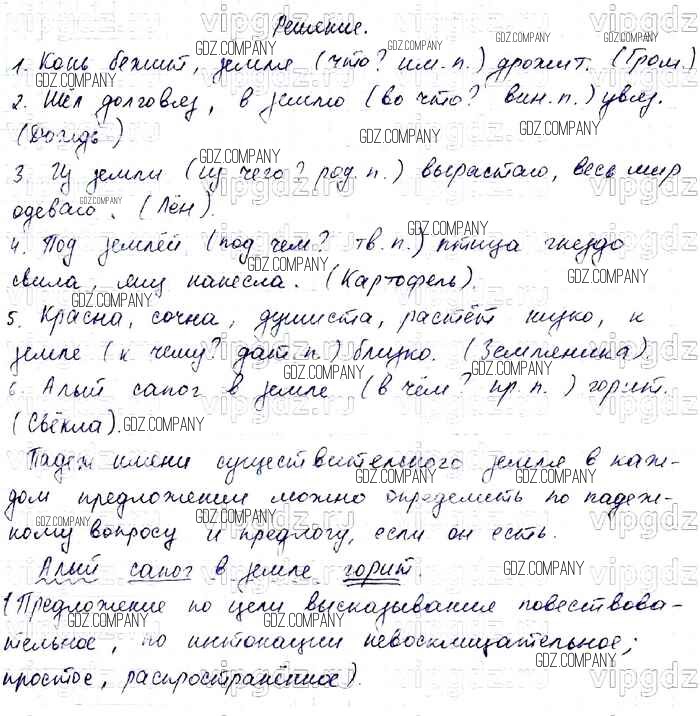 Решение.
1. Конь бежит, земля (что? им. п.) дрожит. (Гром.)
2. Шёл долговяз, в землю (во что? вин. п.) увяз.
(Дождь)
3. Из земли (из чего? род. п.) вырастаю, весь мир
одеваю. (Лён).
4. Под землёй (под чем? тв. п.) птица гнездо
свила, яиц нанесла. (Картофель).
5. Красна, сочна, душиста, растёт низко, к
земле (к чему? дат. п.) близко. (Земляника).
6. Алый сапог в земле (в чём? пр. п.) горит.
(Свёкла).
Падеж имени существительного земля в каж-
дом предложении можно определить по падеж-
ному вопросу и предлогу, если он есть.
Алый сапог в земле горит.
(Предложение по цели высказывания повествова-
тельное, по интонации невосклицательное;
простое, распространённое).